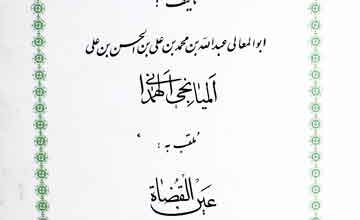 تألیف :
ابوالمعالی عبدالله بن محمد بن علی بن الحسن بن علی
المیانجی الهمدانی
ملقب به :
عین القضاة